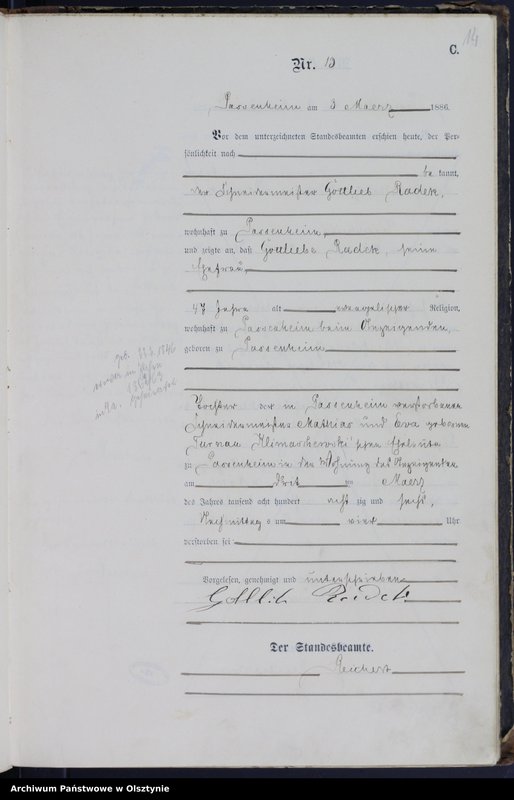 14
C.
Nr. 13
Passenheim am 3 Maerz 1886.
Vor dem unterzeichneten Standesbeamten erschien heute, der Per-
sönlichkeit nach
be kannt,
der Schneidermeister Gottlieb Radek,
wohnhaft zu Passenheim,
und zeigte an, daß Gottliebe Radek, seine
Ehefrau,
47 Jahre alt evangelischer Religion,
wohnhaft zu Passenheim beim Anzeigenden,
geboren zu Passenheim
geb.
Tochter der in Passenheim verstorbenen
Schneidermeister Mathias und Eva geborene
Klimaschewski'schen Eheleute
zu Passenheim in der Wohnung des Anzeigenden
am drei ten Maerz
des Jahres tausend acht hundert acht zig und sechs,
Nachmittag s um vier Uhr
verstorben sei
Vorgelesen, genehmigt und unterschrieben
Gottlieb Radek
Der Standesbeamte.
Reichert
Archiwum Państwowe w Olsztynie